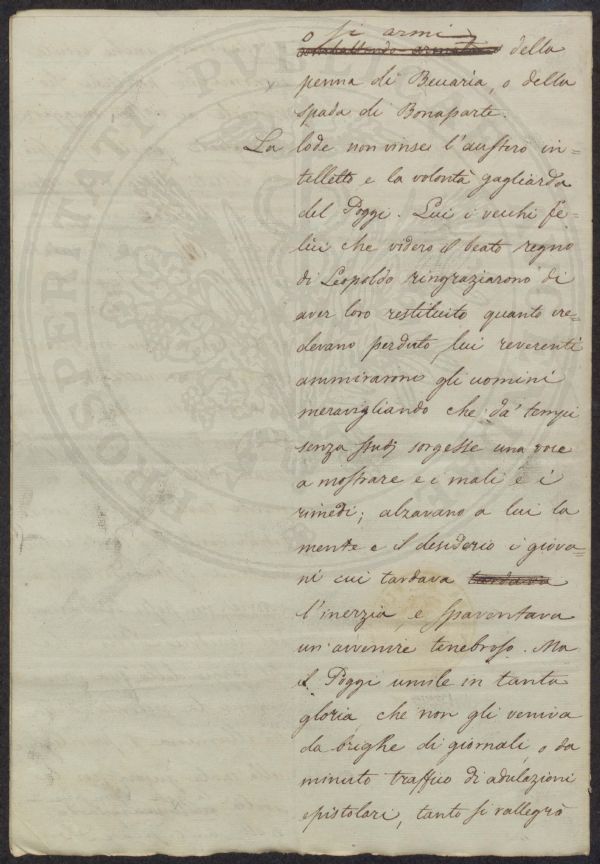 o si armi
combattendo armata o della
penna di Beccaria, o della
spada di Bonaparte.
La lode non vinse l'austero in=
telletto e la volontà gagliarda
del Poggi. Lui i vecchi fe=
lici che videro il beato regno
di Leopoldo ringraziarono di
aver loro restituito quanto cre=
devano perduto, lui reverenti
ammirarono gli uomini
meravigliando che da' tempi
senza studj sorgesse una voce
a mostrare e i mali e i
rimedi; alzavano a lui la
mente e il desiderio i giova=
ni cui tardava tardava
l'inerzia e spaventava
un avvenire tenebroso. Ma
il Poggi umile in tanta
gloria che non gli veniva
da brighe di giornali, o da
minuto traffico di adulazioni
epistolari, tanto si rallegrò
PROSPERITATI PVBL